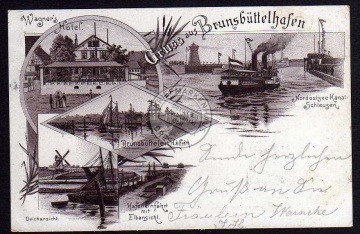 Wagner's
Hôtel.
Gruss aus Brunsbüttelhafen
Nordostsee-Kanal-
Schleusen.
Brunsbüttelerhafen
Deichansicht
Hafeneinfahrt
mit
Elbansicht.
Sende herzlichen
Gruß an Sie
Fräulein